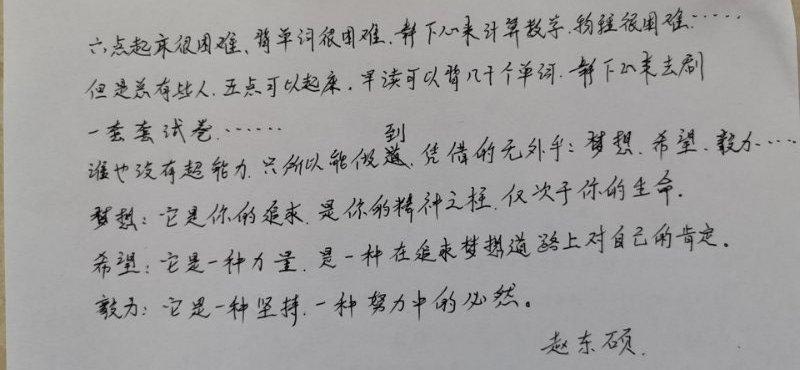 六点起床很困难、背单词很困难、静下心来计算数学、物理很困难……
但是总有些人、五点可以起床、早读可以背几十个单词、静下心来去刷
一套套试卷……
到
谁也没有超能力、只所以能做道、凭借的无外乎：梦想、希望、毅力……
梦想：它是你的追求、是你的精神支柱、仅次于你的生命。
希望：它是一种力量、是一种在追求梦想道路上对自己的肯定。
毅力：它是一种坚持、一种努力中的必然。
赵东硕.